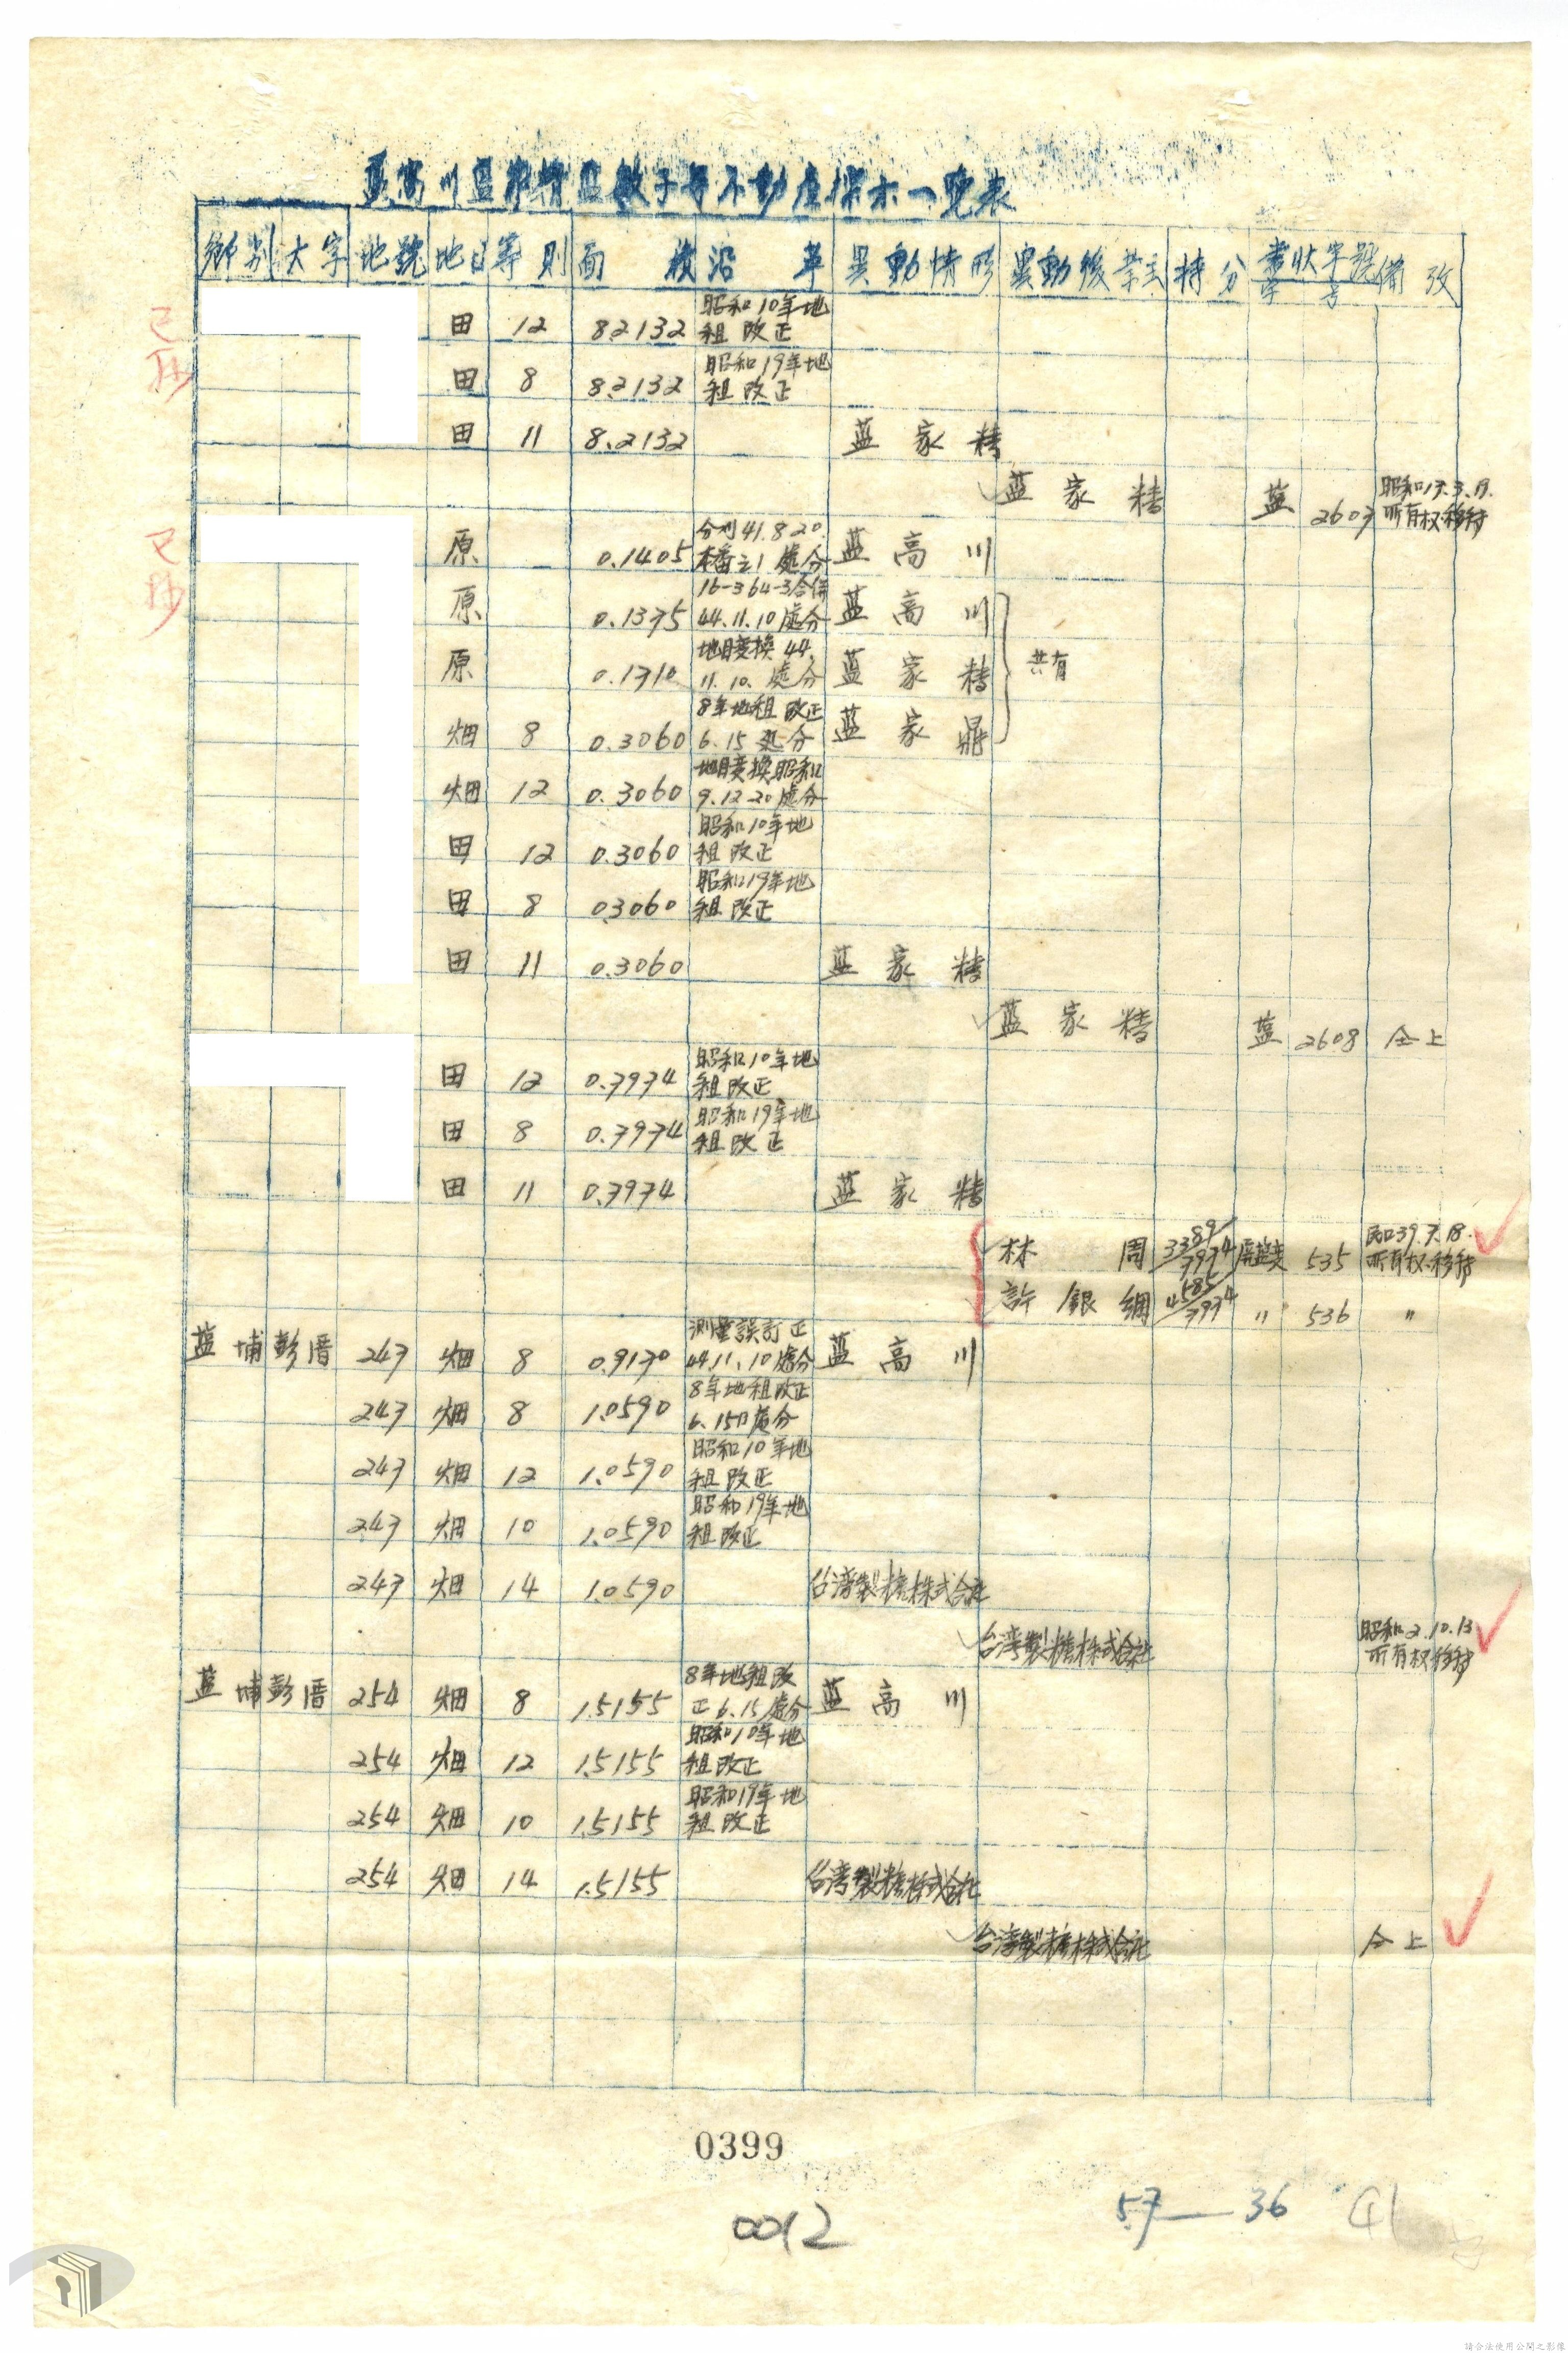 藍高川藍家精藍敏子等不動產標示一覽表
鄉別 大字 地號 地目 等則 面積 沿革 異動情形 異動後業主 持分 書狀字號 備攷
字 号
已抄
田 12 8.2132 昭和10年地
租改正
田 8 8.2132 昭和19年地
租改正
田 11 8.2132 藍家精
藍家精 藍 2607 昭和17.3.19.
所有权移轉
已抄
原 0.1405 分割41.8.20.
本番之1處分 藍高川
原 0.1375 16-3 64-3合併
44.11.10處分 藍高川
原 0.1310 地目變換44.
11.10.處分 藍家精 共有
畑 8 0.3060 8年地租改正
6.15処分 藍家鼎
畑 12 0.3060 地目變換昭和
9.12.20處分
田 12 0.3060 昭和10年地
租改正
田 8 0.3060 昭和19年地
租改正
田 11 0.3060 藍家精
藍家精 藍 2608 仝上
田 12 0.7974 昭和10年地
租改正
田 8 0.7974 昭和19年地
租改正
田 11 0.7974 藍家精
林周 3389/7974 535 民口39.7.18.
所有权移轉
許銀綢 4585/7974 〃 536 〃
塩埔 彭厝 243 畑 8 0.9170 測量誤訂正
44.11.10處分 藍高川
243 畑 8 1.0590 8年地租改正
6.15日處分
243 畑 12 1.0590 昭和10年地
租改正
243 畑 10 1.0590 昭和19年地
租改正
243 畑 14 1.0590 台湾製糖株式会社
台湾製糖株式会社 昭和2.10.13
所有权移轉
塩埔 彭厝 254 畑 8 1.5155 8年地租改
正6.15處分 藍高川
254 畑 12 1.5155 昭和10年地
租改正
254 畑 10 1.5155 昭和19年地
租改正
254 畑 14 1.5155 台湾製糖株式会社
台湾製糖株式会社 仝上
0399
0012
57—36 41
請合法使用公開之影像